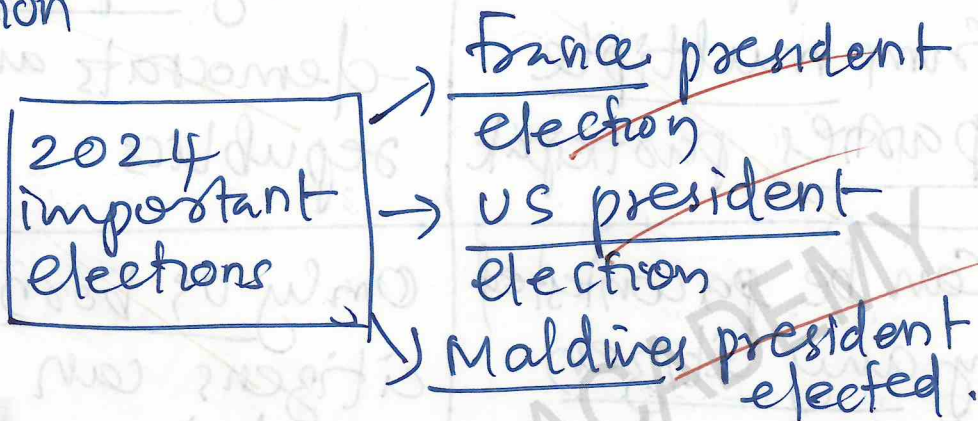 2024
important
elections
France president
election
US president
election
Maldives president
elected.
ACADEMY